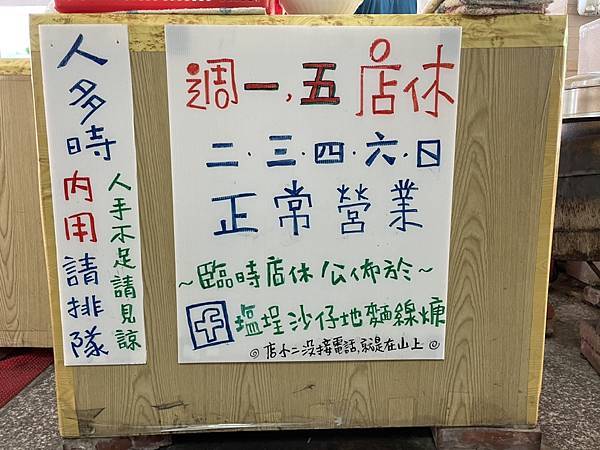 人多時
內用請排隊
人手不足請見諒
週一,五店休
二.三.四.六.日
正常營業
~臨時店休公佈於~
f塩埕沙仔地麵線糠
◎店小二沒接電話,就是在山上◎